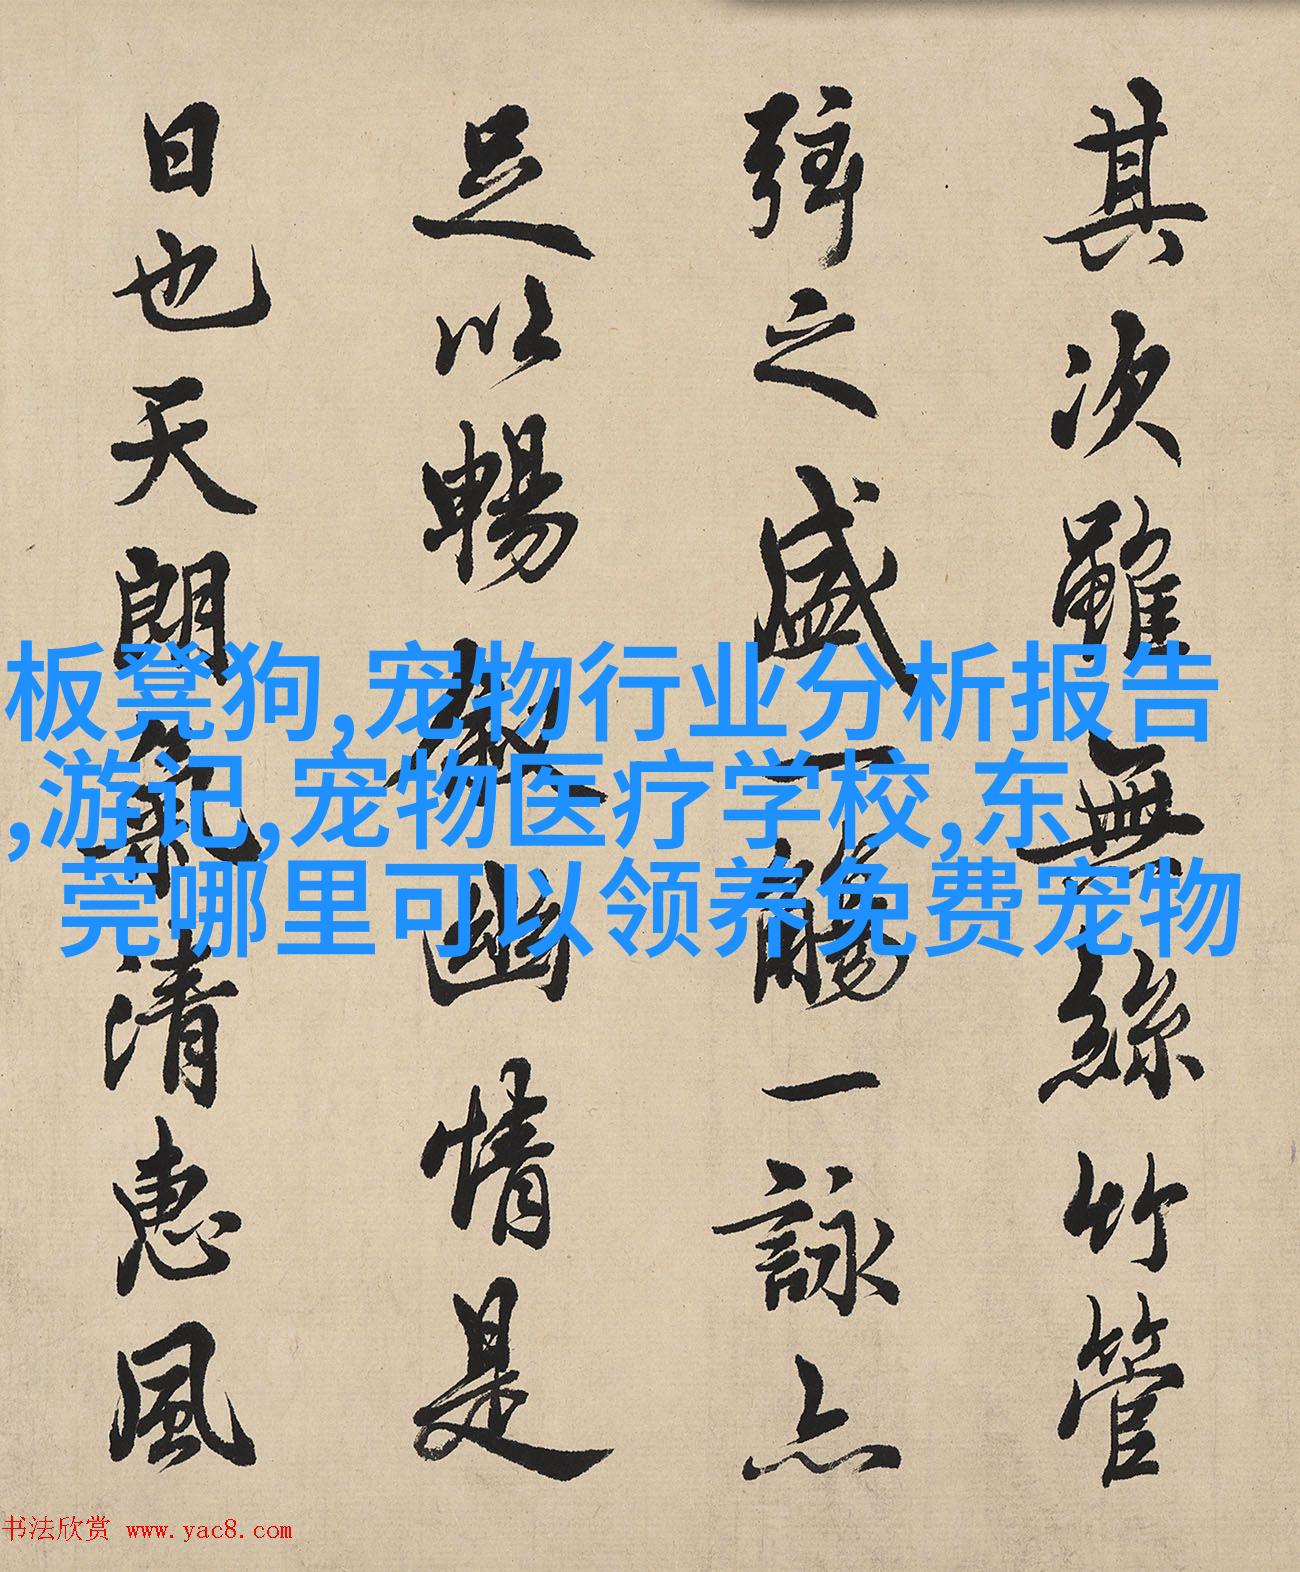 其次雖無絲竹管
弦之盛一觴一詠亦
足以暢敘幽情是
日也天朗氣清惠風
板凳狗,宠物行业分析报告
,游记,宠物医疗学校,东
莞哪里可以领养免费宠物
书法欣赏 www.yac8.com